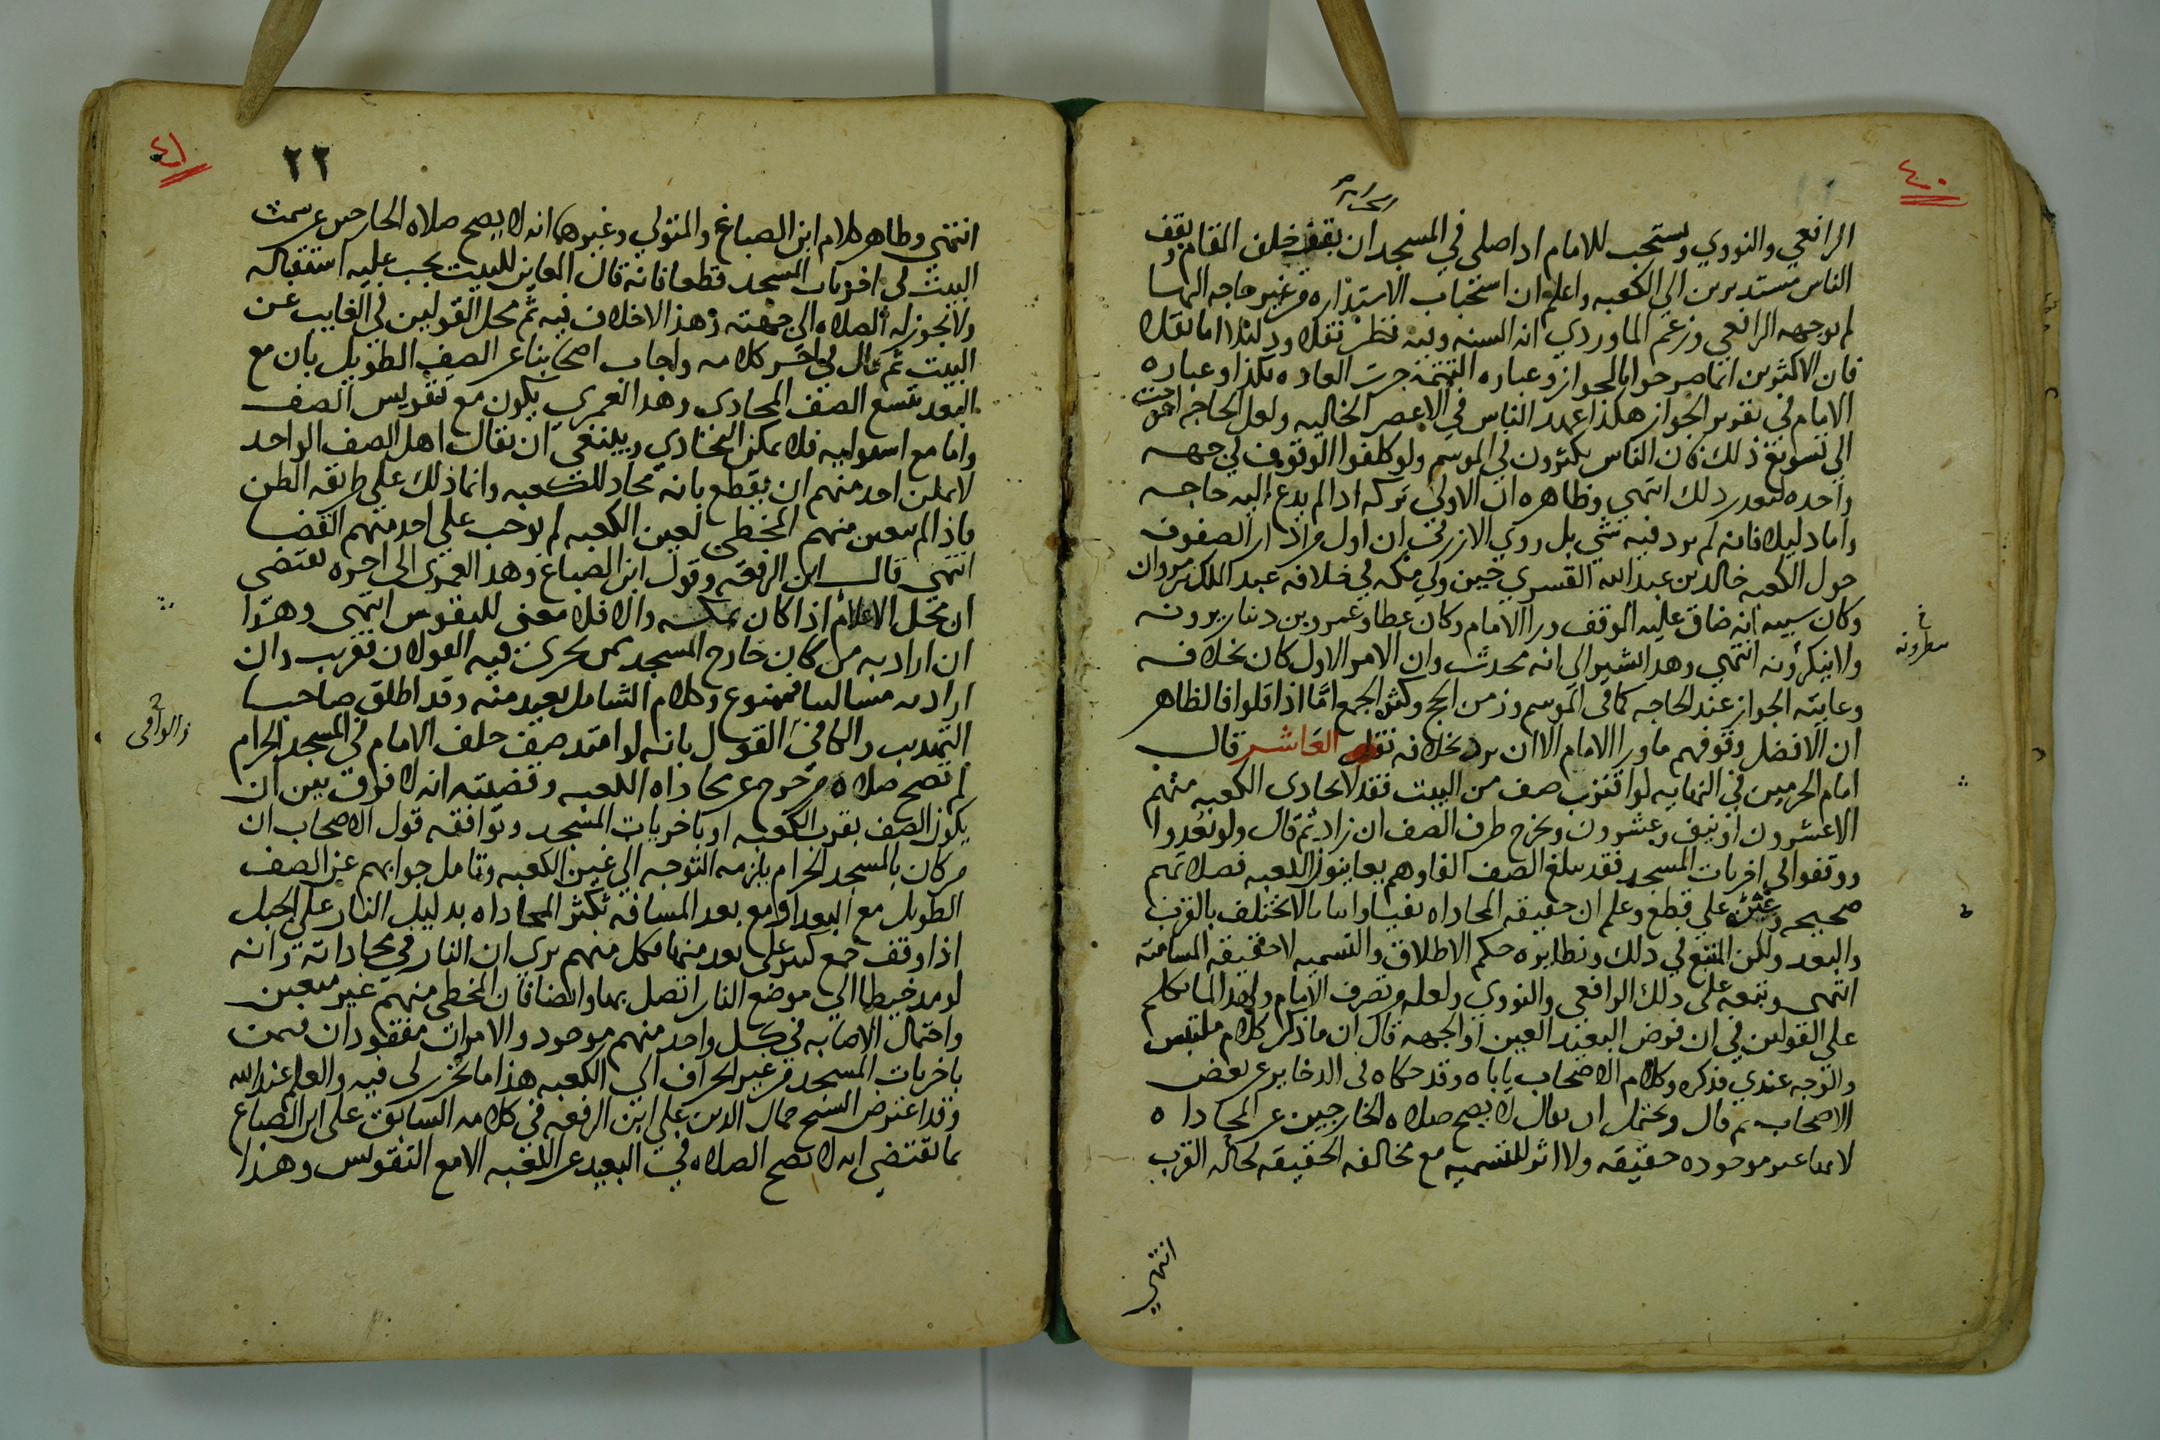 ٤٠
الحرام
الرافعي والنووي ويستحب للامام اذا صلى في المسجد ان يقف خلف المقام ويقف
الناس مستديرين الي الكعبه واعلم ان استحباب الاستداره من غير حاجه اليها
لم يوجهه الرافعي وزعم الماوردي انه السنه وفيه نظر نقلا ودليلا اما نقلا
فان الاكثرين انما صرحوا بالجواز وعباره التتمة جرت العاده بكذا وعباره
الامام في تقرير الجواز هكذا عهد الناس في الاعصر الخاليه ولعل الحاجه احوجت
الي تسويغ ذلك فان الناس يكثرون في الموسم ولو كلفوا الوقوف في جهه
واحده لتعذر ذلك انتهي وظاهره ان الاولي تركه اذا لم يدع اليه حاجه
واما دليلا فانه لم يرد فيه شي بل روي الازرقي ان اول من ادار الصفوف
حول الكعبه خالد بن عبد الله القسري حين ولي مكه في خلافه عبد الملك بن مروان
وكان سببه انه ضاق عليه الموقف ورا الامام وكان عطا وعمرو بن دينار يرونه
ولا ينكرونه انتهي وهذا يشير الى انه محدث وان الامر الاول كان بخلافه
وغايته الجواز عند الحاجه كما في الموسم وزمن الحج وكثره الجمع اما اذا قلوا فالظاهر
ان الافضل وقوفهم ما ورا الامام الا ان يرد بخلافه نقل العاشر قال
امام الحرمين في النهايه لو اقترب صف من البيت فقد لا يحاذي الكعبه منهم
الا عشرون او نيف وعشرون ويخرج طرف الصف ان زاد ثم قال ولو بعدوا
ووقفوا الي اخريات المسجد فقد يبلغ الصف الفا وهم يعاينون الكعبه فصلاتهم
صحيحه على قطع وعلم ان حقيقه المحاذاه نفيا واثباتا لا تختلف بالقرب
والبعد ولكن المتبع في ذلك ونظايره حكم الاطلاق والتسميه لا حقيقه المسامته
انتهى وتبعه على ذلك الرافعي والنووي ولعله من تصرف الامام ولهذا لما تكلم
علي القولين في ان فرض البعيد العين او الجهه قال ان ما ذكر كلام ملتبس
والوجه عندي فذكره وكلام الاصحاب ياباه وقد حكاه في الدخاير عن بعض
الاصحاب ثم قال ويحتمل ان يقال لا يصح صلاه الخارجين عن المحاذاه
لانها غير موجوده حقيقه ولا اثر للتسميه مع مخالفه الحقيقه لحاله القرب
ينظرونه
انتهي
٤١
٢٢
انتهي وظاهر كلام ابن الصباغ والمتولي وغيرهما انه لا يصح صلاه الخارجين عن سمت
البيت في اخريات المسجد قطعا فانه قال المعاين للبيت يجب عليه استقباله
ولا تجوز له الصلاه الي جهته وهذا لا خلاف فيه ثم محل القولين في الغايب عن
البيت ثم قال في اخر كلامه واجاب اصحابنا عن الصف الطويل بان مع
البعد يتسع الصف المحاذي وهذا لعمري يكون مع تقويس الصف
واما مع استوايه فلا يمكن التحاذي وينبغي ان يقال اهل الصف الواحد
لا يمكن احد منهم ان يقطع بانه محاذ للكعبه وانما ذلك علي طريقه الظن
فاذا لم يتعين منهم المخطي لعين الكعبه لم يوجب علي احد منهم القضا
انتهي قال ابن الرفعه وقول ابن الصباغ وهذا لعمري الى اخره يقتضي
ان محل الاعلام اذا كان بمكه والا فلا معني للتقويس انتهى وهذا
ان اراد به من كان خارج المسجد ممن يجرى فيه القولان فقريب وان
اراد به مسالتنا فممنوع وكلام الشامل بعيد منه وقد اطلق صاحبا
التهذيب والكافي القول بانه لو امتد صف خلف الامام في المسجد الحرام
لم تصح صلاه من خرج عن محاذاه الكعبه وقضيته انه لا فرق بين ان
يكون الصف بقرب الكعبه او باخريات المسجد ويوافقه قول الاصحاب ان
من كان بالمسجد الحرام يلزمه التوجه الي عين الكعبه وتامل جوابهم عن الصف
الطويل مع البعد او مع بعد المسافه تكثر المحاذاه بدليل النار علي الجبل
اذا وقف جمع كثير على بعد منها فكل منهم يرى ان النار في محاذاته وانه
لو مد خيطا الي موضع النار اتصل بها وايضا فان المخطي منهم غير متعين
واحتمال الاصابه في كل واحد منهم موجود والامران مفقودان فيمن
باخريات المسجد من غير انحراف الي الكعبه هذا ما تحرر لي فيه والعلم عند الله
وقد اعترض الشيخ جمال الدين علي ابن الرفعه في كلامه السابق على ابن الصباغ
بما يقتضي انه لا تصح الصلاه في البعيد عن الكعبه الا مع التقويس وهذا
والوافي